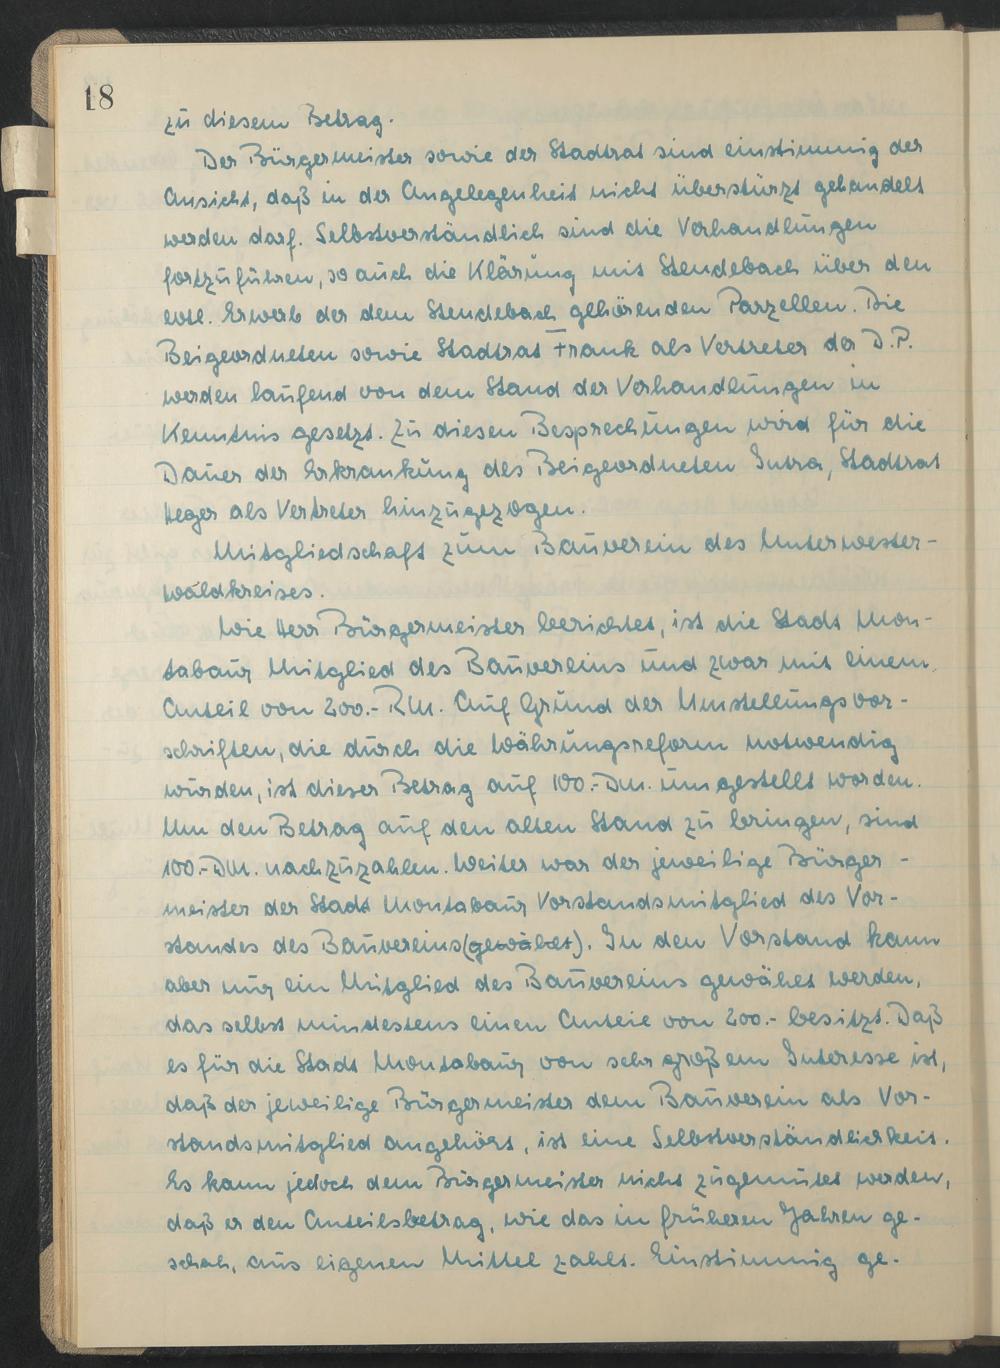 18
zu diesem Betrag.
Der Bürgermeister sowie der Stadtrat sind einstimmig der
Ansicht, daß in der Angelegenheit nicht überstürzt gehandelt
werden darf. Selbstverständlich sind die Verhandlungen
fortzuführen, so auch die Klärung mit Stendebach über den
evtl. Erwerb der dem Stendebach gehörenden Parzellen. Die
Beigeordneten sowie Stadtrat Frank als Vertreter der D.P.
werden laufend von dem Stand der Verhandlungen in
Kenntnis gesetzt. Zu diesen Besprechungen wird für die
Dauer der Erkrankung des Beigeordneten Intra, Stadtrat
Heger als Vertreter hinzugezogen.
Mitgliedschaft zum Bauverein des Unterwester-
waldkreises.
Wie Herr Bürgermeister berichtet, ist die Stadt Mon-
tabaur Mitglied des Bauvereins und zwar mit einem
Anteil von 200.- RM. Auf Grund der Umstellungsvor-
schriften, die durch die Währungsreform notwendig
wurden, ist dieser Betrag auf 100.- DM. umgestellt worden.
Um den Betrag auf den alten Stand zu bringen, sind
100.- DM. nachzuzahlen. Weiter war der jeweilige Bürger-
meister der Stadt Montabaur Vorstandsmitglied des Vor-
standes des Bauvereins (gewählt). In den Vorstand kann
aber nur ein Mitglied des Bauvereins gewählt werden,
das selbst mindestens einen Anteil von 200.- besitzt. Daß
es für die Stadt Montabaur von sehr großem Interesse ist,
daß der jeweilige Bürgermeister dem Bauverein als Vor-
standsmitglied angehört, ist eine Selbstverständlichkeit.
Es kann jedoch dem Bürgermeister nicht zugemutet werden,
daß er den Anteilsbetrag, wie das in früheren Jahren ge-
schah, aus eigenen Mittel zahlt. Einstimmig ge-